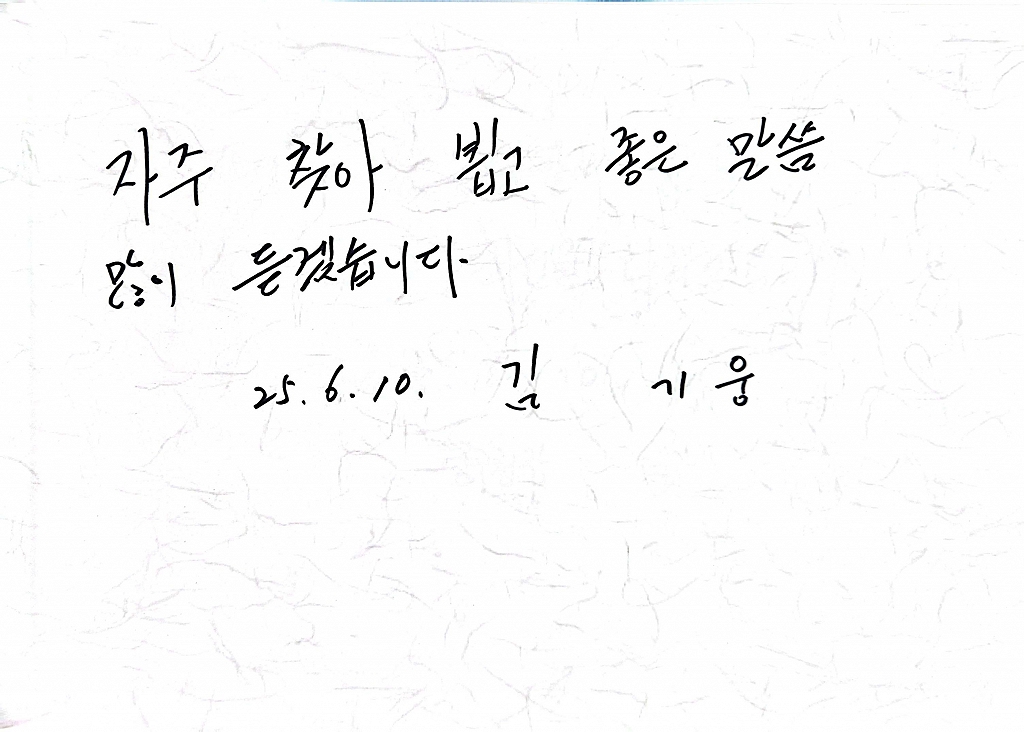 자주 찾아 뵙고 좋은 말씀
많이 듣겠습니다.
25.6.10. 김 기웅